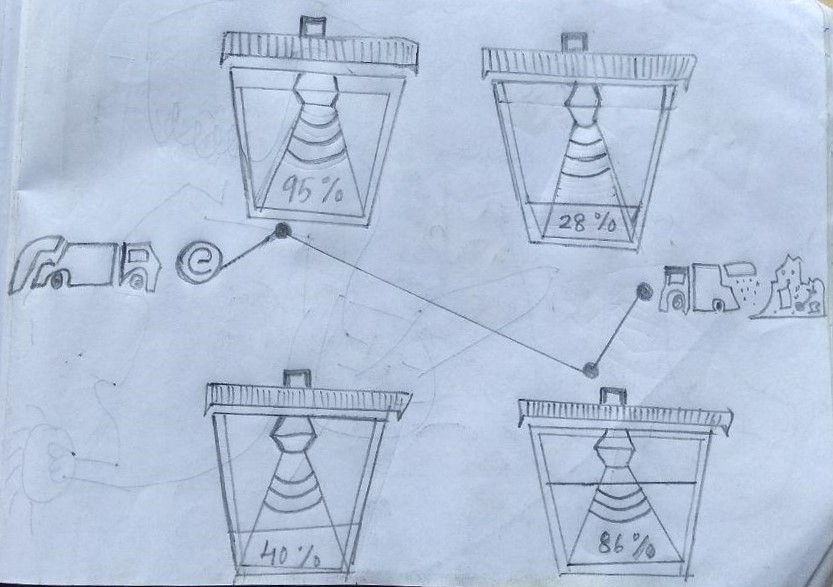 95%
28%
e
40%
86%